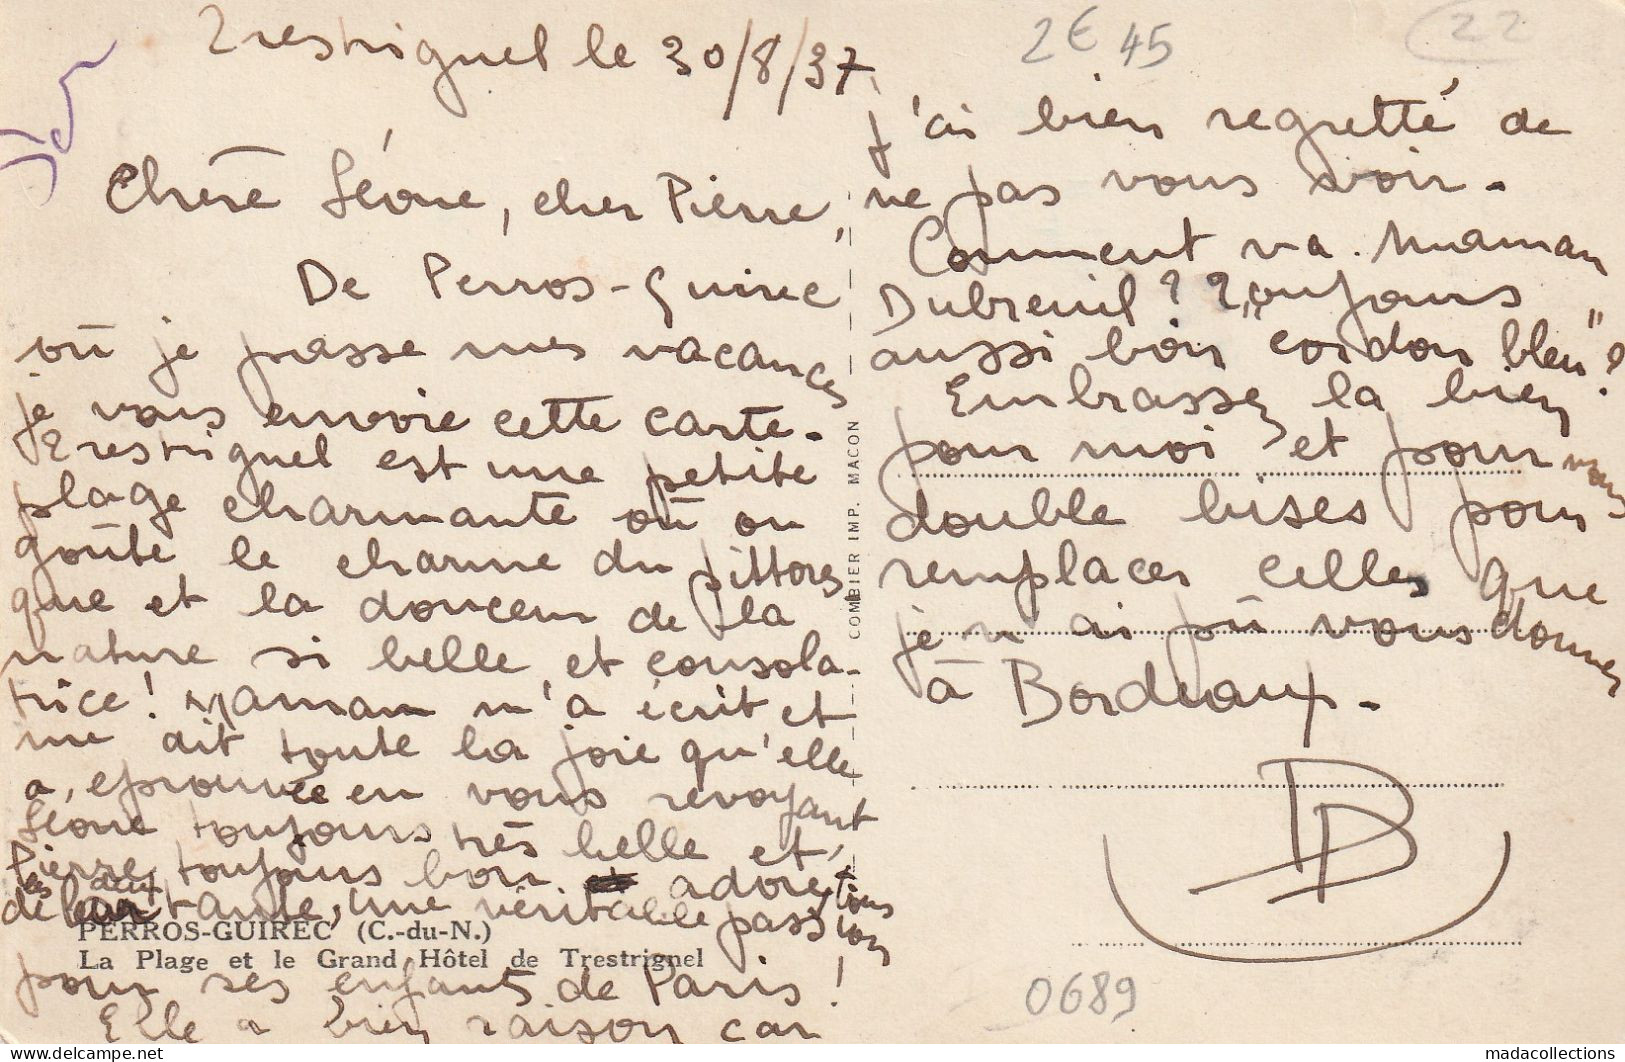 Trestriguel le 30/8/37
2€45
22
Chère Léone, cher Pierre,
De Perros-Guirec
où je passe mes vacances
je vous envoie cette carte.
Trestriguel est une petite
plage charmante où on
goûte le charme du pittores
que et la douceur de la
nature si belle et consola-
trice! Maman m'a écrit et
me dit toute la joie qu'elle
a éprouvée en vous revoyant
Léone toujours très belle et
Pierre toujours bon adoré
de tante, une véritable passion
pour ses enfants de Paris!
Elle a bien raison car
j'ai bien regretté de
ne pas vous voir.
Comment va. Maman
Dubreuil? Toujours
aussi bon "cordon bleu"?
Embrassez la bien
pour moi et pour vous
double bises pour
remplacer celles que
je n'ai pû vous donner
à Bordeaux.
COMBIER IMP. MACON
PERROS-GUIREC (C.-du-N.)
La Plage et le Grand Hôtel de Trestrignel
0689
madacollections